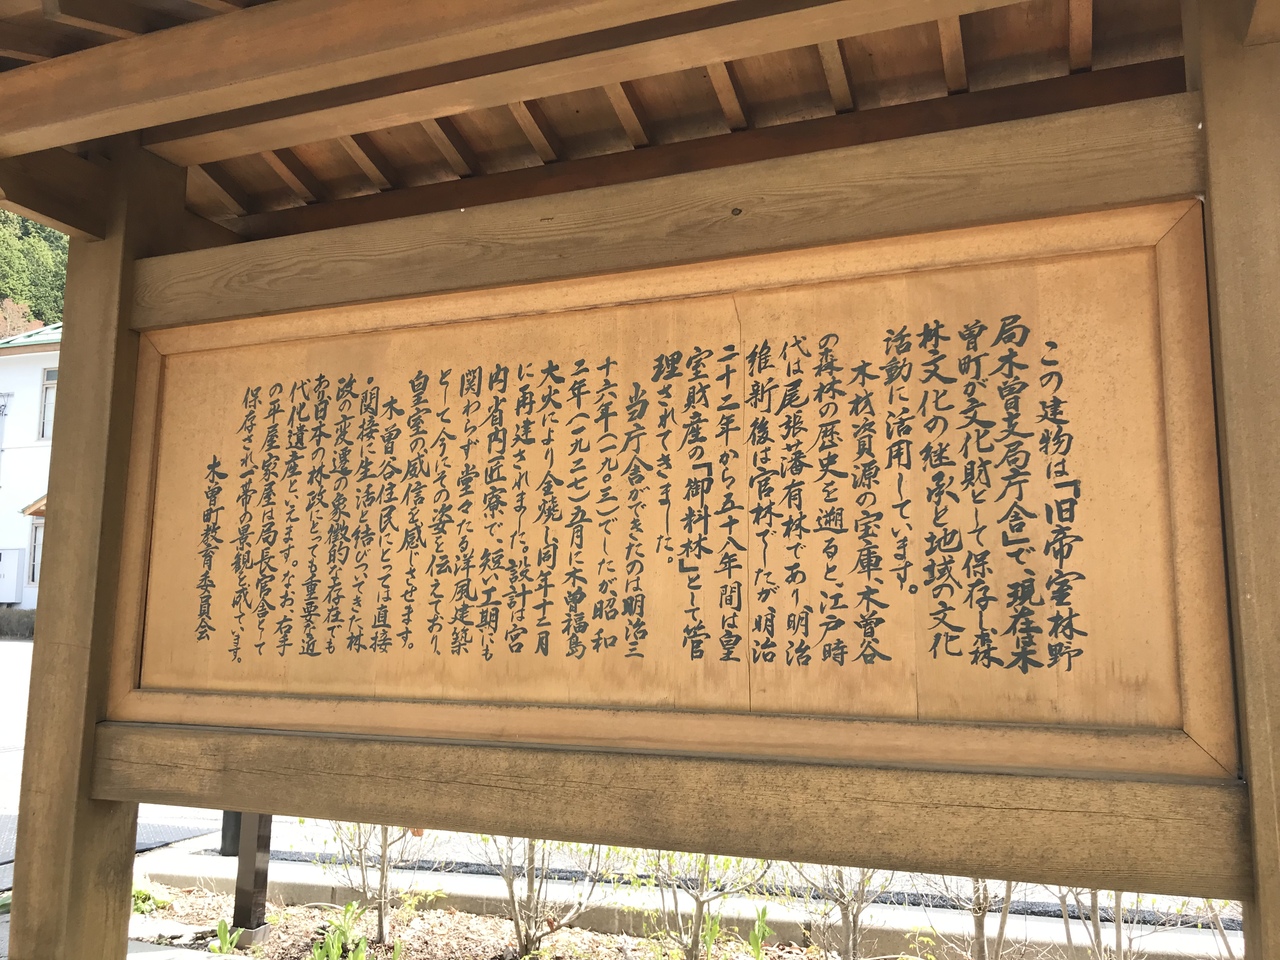 この建物は「旧帝室林野
局木曽支局庁舎」で、現在木
曽町が文化財として保存し森
林文化の継承と地域の文化
活動に活用しています。
木材資源の宝庫、木曽谷
の森林の歴史を遡ると、江戸時
代は尾張藩有林であり、明治
維新後は官林でしたが、明治
二十二年から五十八年間は皇
室財産の「御料林」として管
理されてきました。
当庁舎ができたのは明治三
十六年(一九〇三)でしたが、昭和
二年(一九二七)五月に木曽福島
大火により全焼し、同年十二月
に再建されました。設計は宮
内省内匠寮で、短い工期にも
関わらず堂々たる洋風建築
として今にその姿を伝えており、
皇室の威信を感じさせます。
木曽谷住民にとっては直接
・間接に生活と結びついてきた林
政の変遷の象徴的な存在でも
あり、日本の林政にとっても重要な近
代化遺産といえます。なお、右手
の平屋家屋は局長官舎として
保存され一帯の景観を成しています。
木曽町教育委員会